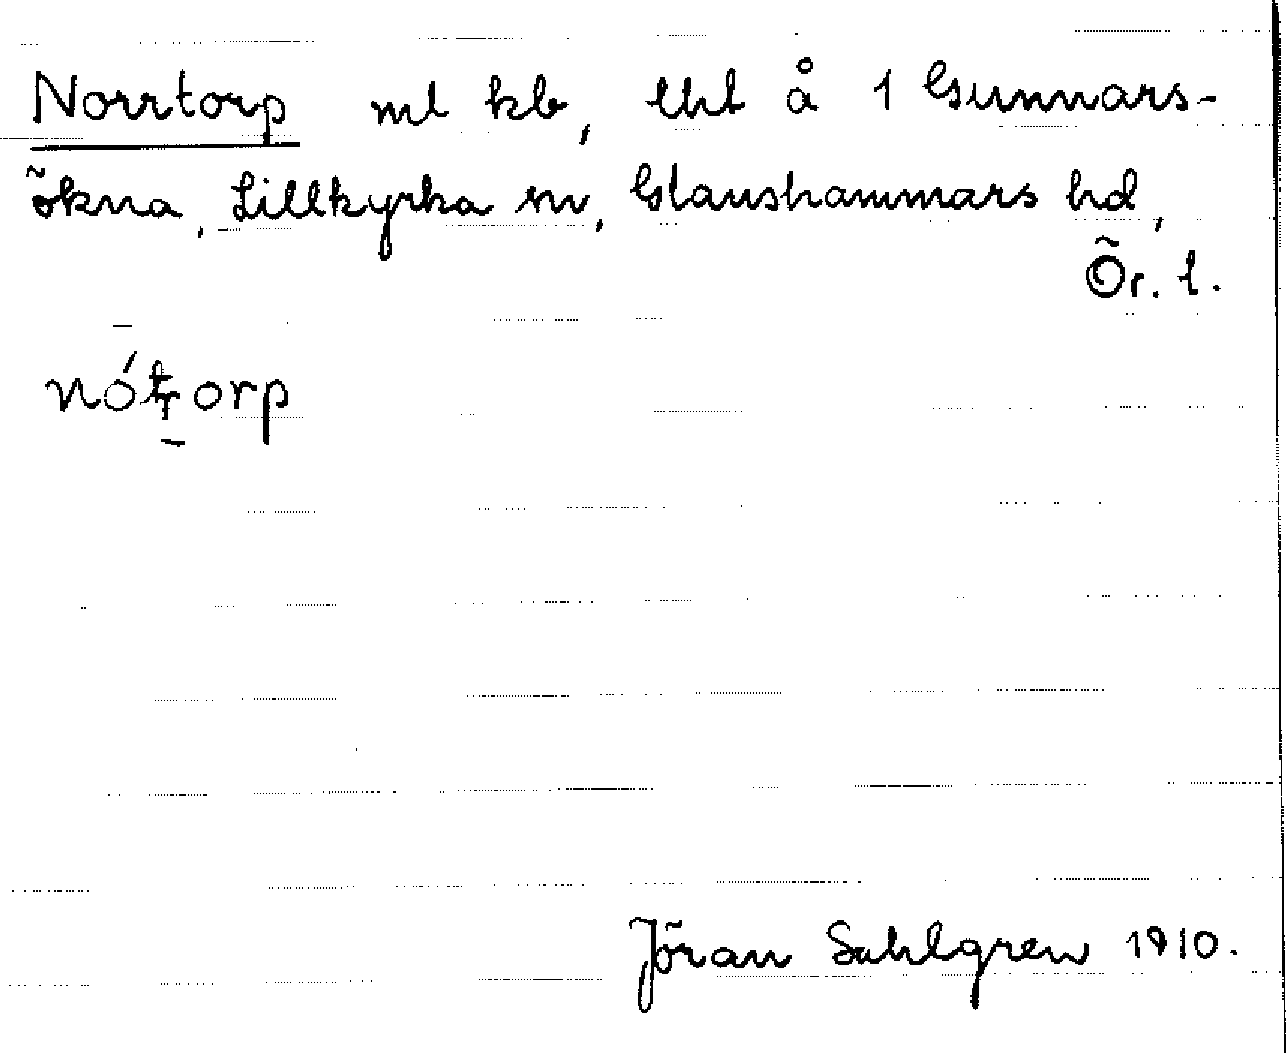 Norrtorp ml kb, lht å 1 Gunnars-
ökna, Lillkyrka sn, Glanshammars hd,
Ör. l.
nótrorp
Jöran Sahlgren 1910.